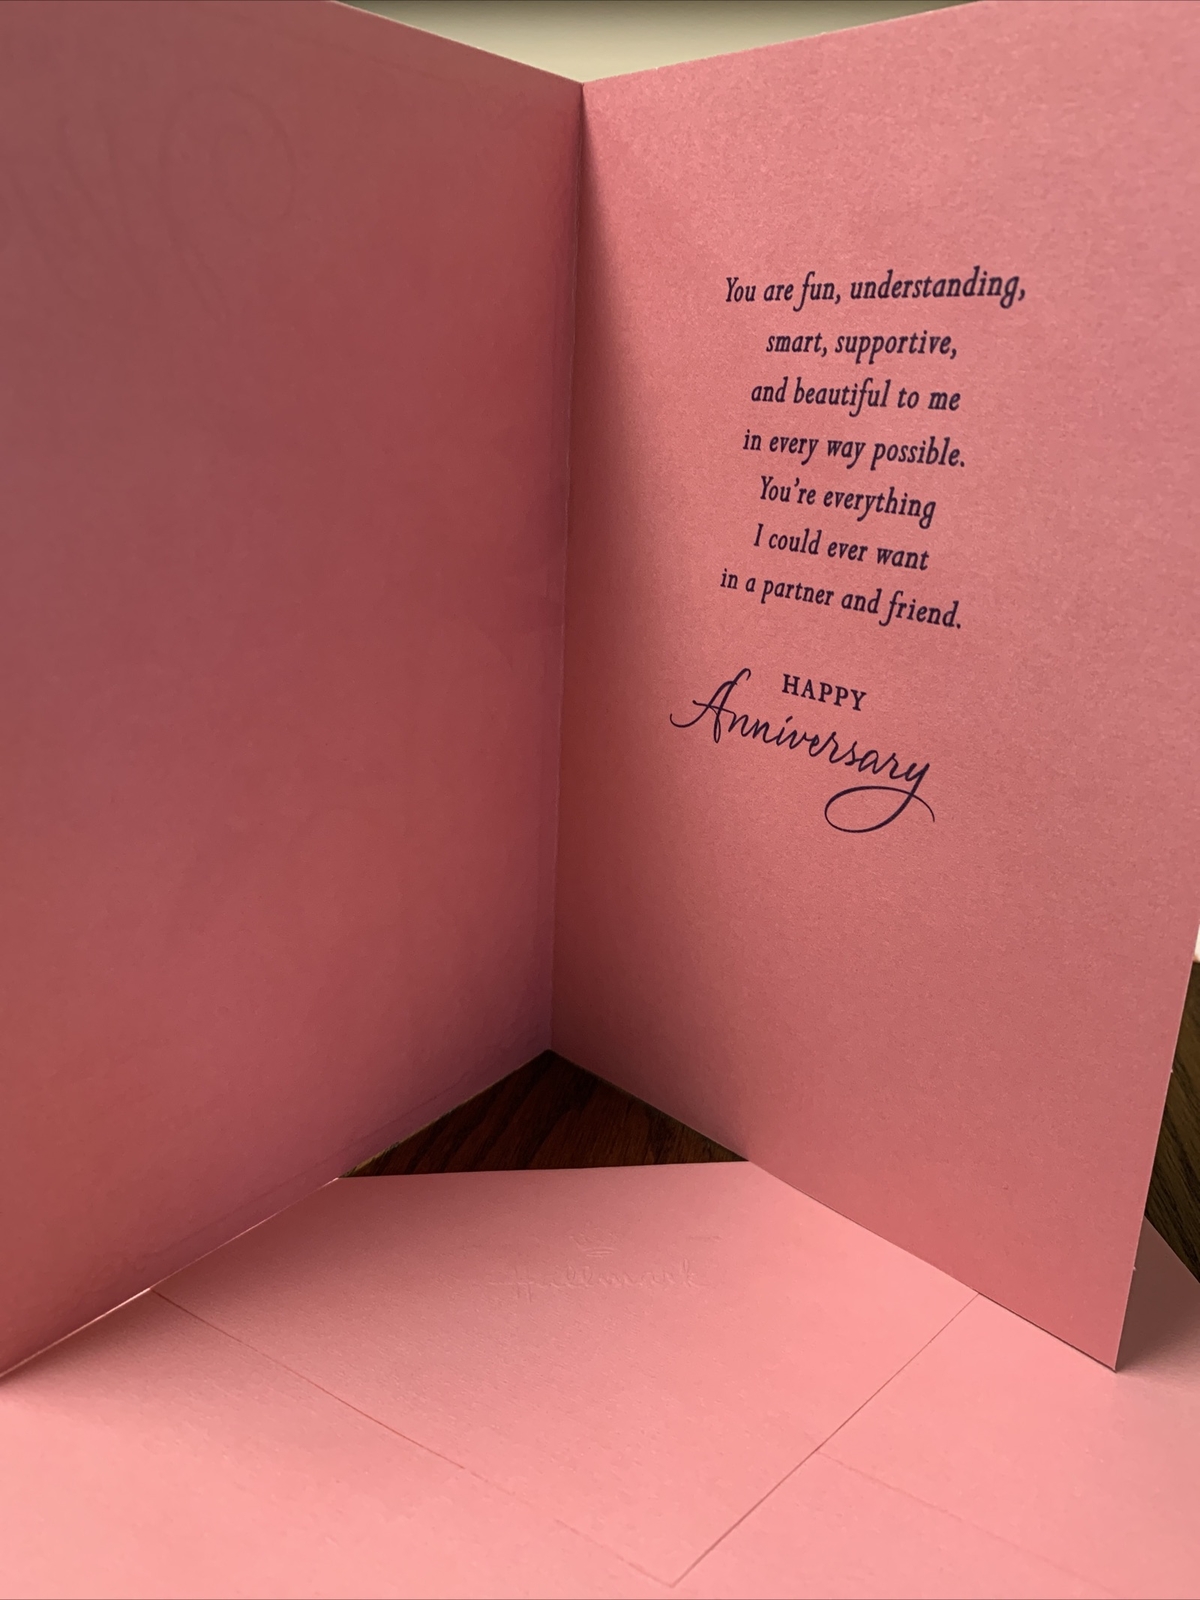 You are fun, understanding,
smart, supportive,
and beautiful to me
in every way possible.
You're everything
I could ever want
in a partner and friend.
HAPPY
Anniversary
Hallmark